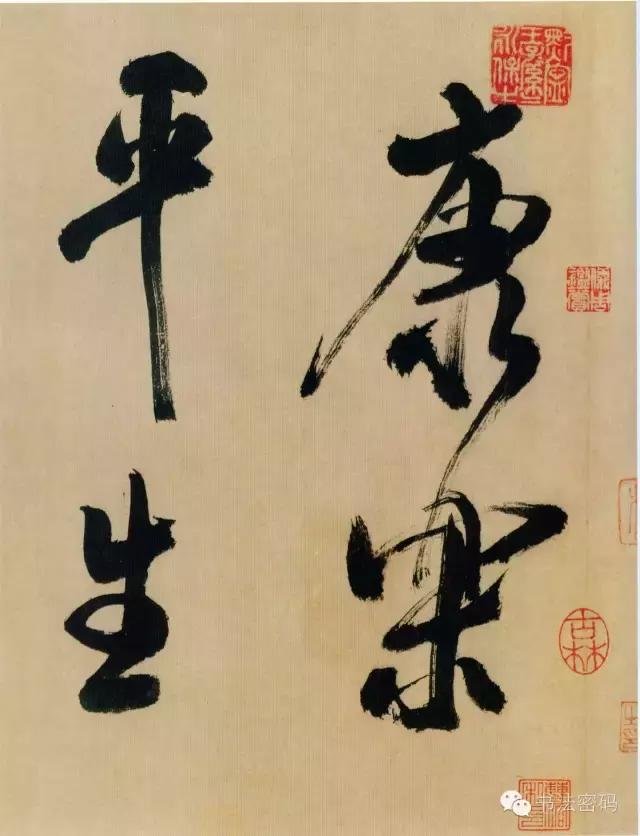 康樂
平生
书法密码